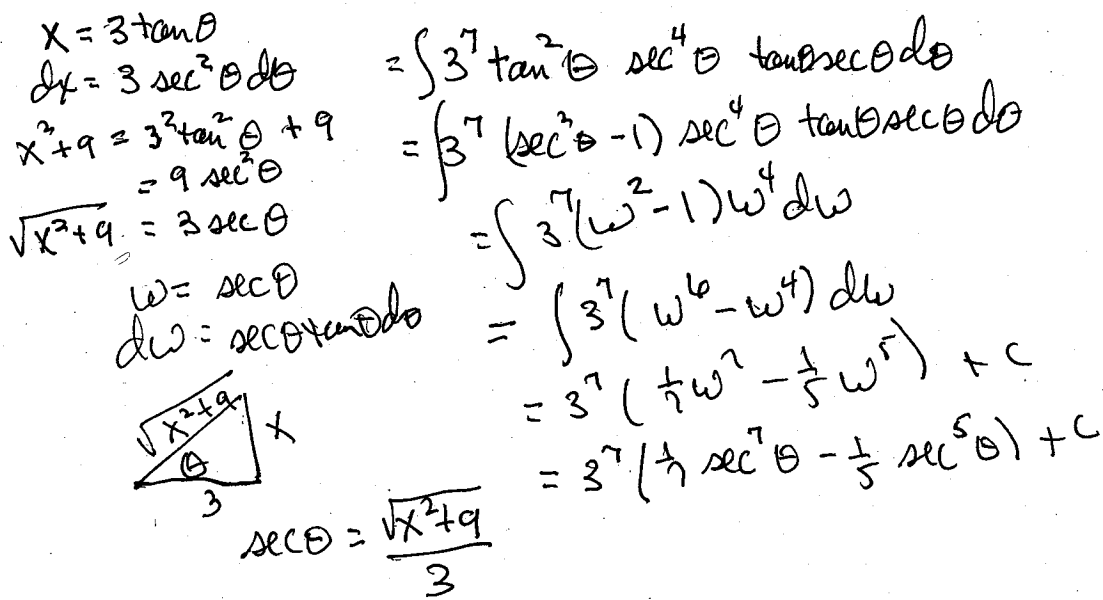 x = 3 tanθ
dx = 3 sec²θ dθ
x²+9 = 3² tan²θ + 9
= 9 sec²θ
√(x²+9) = 3 secθ
w = secθ
dw = secθ tanθ dθ
√(x²+9)
x
θ
3
secθ = √(x²+9)/3
= ∫ 3⁷ tan²θ sec⁴θ tanθ secθ dθ
= ∫ 3⁷ (sec²θ - 1) sec⁴θ tanθ secθ dθ
= ∫ 3⁷ (w² - 1) w⁴ dw
= ∫ 3⁷ (w⁶ - w⁴) dw
= 3⁷ (1/7 w⁷ - 1/5 w⁵) + C
= 3⁷ (1/7 sec⁷θ - 1/5 sec⁵θ) + C